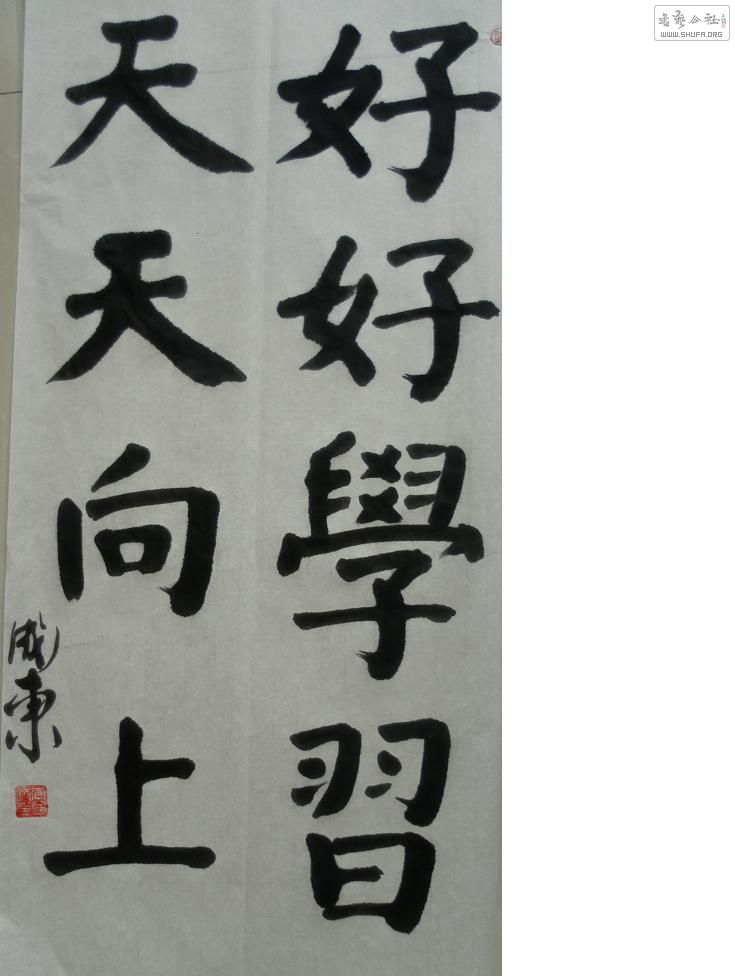 好好學習
天天向上
成東
书艺公社
WWW.SHUFA.ORG